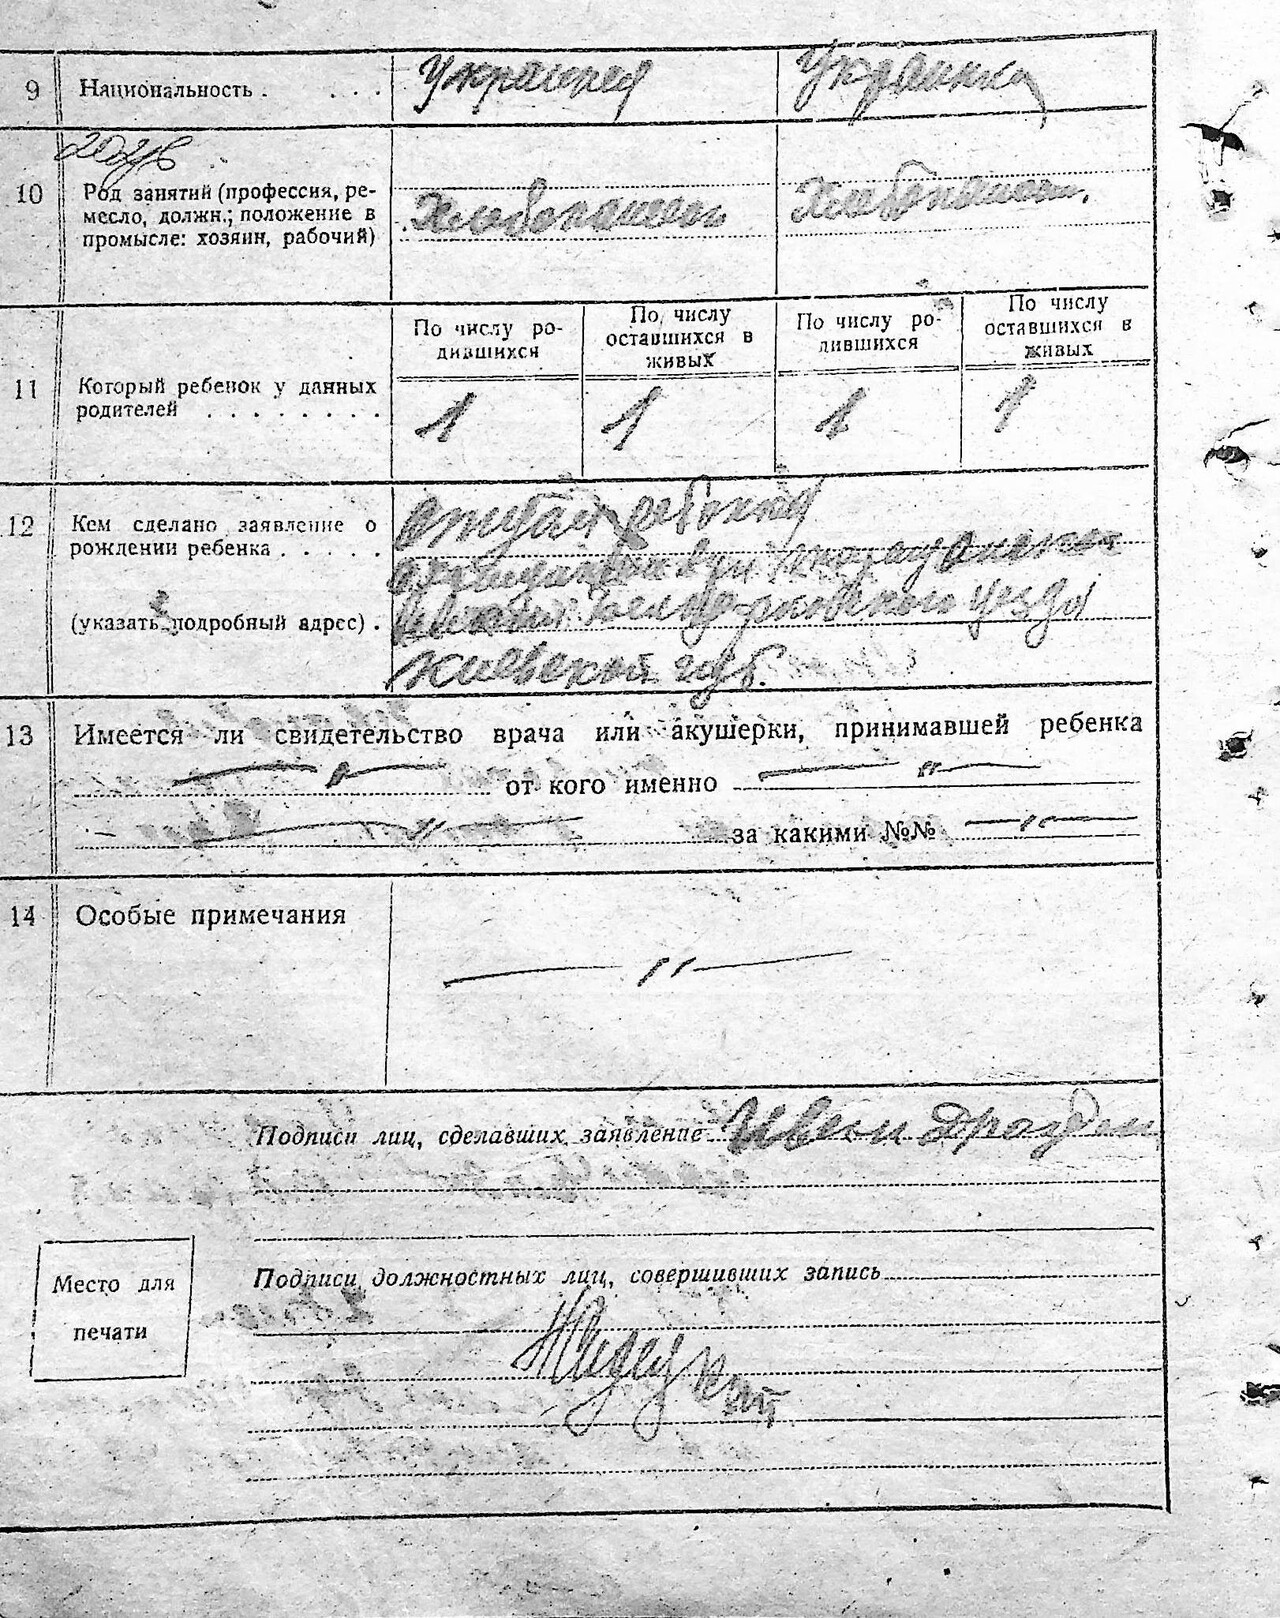 9 Национальность . . . . Украинец Украинка
10 Род занятий (профессия, ре-
месло, должн.; положение в
промысле: хозяин, рабочий)
Хлебопашец Хлебопашест.
По числу ро-
дившихся
По числу
оставшихся в
живых
По числу ро-
дившихся
По числу
оставшихся в
живых
11 Который ребенок у данных
родителей . . . . . . . .
1 1 1 1
12 Кем сделано заявление о
рождении ребенка . . . . .
(указать подробный адрес) .
ребенка
уезда
Киевской губ.
13 Имеется ли свидетельство врача или акушерки, принимавшей ребенка
— " — от кого именно — " —
— " — за какими №№ — " —
14 Особые примечания
— " —
Подписи лиц, сделавших заявление Иван
Подписи должностных лиц, совершивших запись
Место для
печати